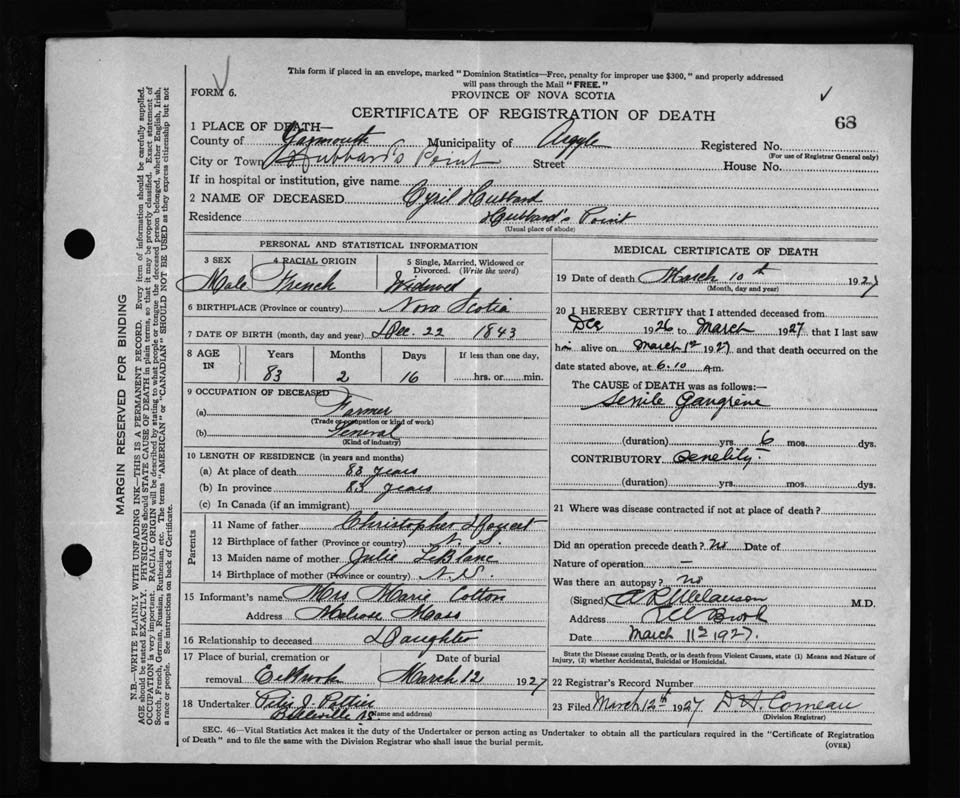 This form if placed in an envelope, marked "Dominion Statistics—Free, penalty for improper use $300," and properly addressed
will pass through the Mail "FREE."
FORM 6.
PROVINCE OF NOVA SCOTIA
CERTIFICATE OF REGISTRATION OF DEATH
68
1 PLACE OF DEATH—
County of Yarmouth Municipality of Argyle Registered No.
(For use of Registrar General only)
City or Town Hubbard's Point Street House No.
If in hospital or institution, give name
2 NAME OF DECEASED Cyril Hubbard
Residence Hubbard's Point
(Usual place of abode)
PERSONAL AND STATISTICAL INFORMATION
3 SEX 4 RACIAL ORIGIN 5 Single, Married, Widowed or Divorced. (Write the word)
Male French Widowed
6 BIRTHPLACE (Province or country) Nova Scotia
7 DATE OF BIRTH (month, day and year) Dec. 22 1843
8 AGE IN Years Months Days If less than one day,
83 2 16 hrs. or min.
9 OCCUPATION OF DECEASED
(a) Farmer
(Trade occupation or kind of work)
(b) General
(Kind of industry)
10 LENGTH OF RESIDENCE (in years and months)
(a) At place of death 83 years
(b) In province 83 years
(c) In Canada (if an immigrant)
Parents
11 Name of father Christopher
12 Birthplace of father (Province or country) N. S.
13 Maiden name of mother Julie LeBlanc
14 Birthplace of mother (Province or country) N. S.
15 Informant's name Mrs Marie Cotton
Address Melrose Mass
16 Relationship to deceased Daughter
17 Place of burial, cremation or removal Date of burial
Eelbrook March 12 1927
18 Undertaker J. Pottier
(Name and address)
Belleville NS
MEDICAL CERTIFICATE OF DEATH
19 Date of death March 10th 1927
(Month, day and year)
20 I HEREBY CERTIFY that I attended deceased from
Dec 1926 to March 1927 that I last saw
him alive on March 1st 1927 and that death occurred on
date stated above, at 6.10 a.m.
The CAUSE of DEATH was as follows:—
Senile Gangrene
(duration) yrs. 6 mos. dys.
CONTRIBUTORY Senility.
(duration) yrs. mos. dys.
21 Where was disease contracted if not at place of death?
Did an operation precede death? No Date of
Nature of operation —
Was there an autopsy? No
(Signed) A. R. Melanson M.D.
Address Eel Brook
Date March 11th 1927.
State the Disease causing Death, or in death from Violent Causes, state (1) Means and Nature of
Injury, (2) whether Accidental, Suicidal or Homicidal.
22 Registrar's Record Number
23 Filed March 12th 1927 D. H. Comeau
(Division Registrar)
SEC. 46—Vital Statistics Act makes it the duty of the Undertaker or person acting as Undertaker to obtain all the particulars required in the "Certificate of Registration
of Death" and to file the same with the Division Registrar who shall issue the burial permit.
(OVER)
MARGIN RESERVED FOR BINDING
N.B.—WRITE PLAINLY WITH UNFADING INK—THIS IS A PERMANENT RECORD. Every item of information should be carefully supplied.
AGE should be stated EXACTLY. PHYSICIANS should STATE CAUSE OF DEATH in plain terms, so that it may be properly classified. Exact statement of
OCCUPATION is very important. RACIAL ORIGIN will be described by stating to what people or tongue the deceased person belonged, whether English, Irish,
Scotch, French, German, Russian, Ruthenian, etc. The terms "AMERICAN" or "CANADIAN" SHOULD NOT BE USED as they express citizenship but not
a race or people. See instructions on back of Certificate.